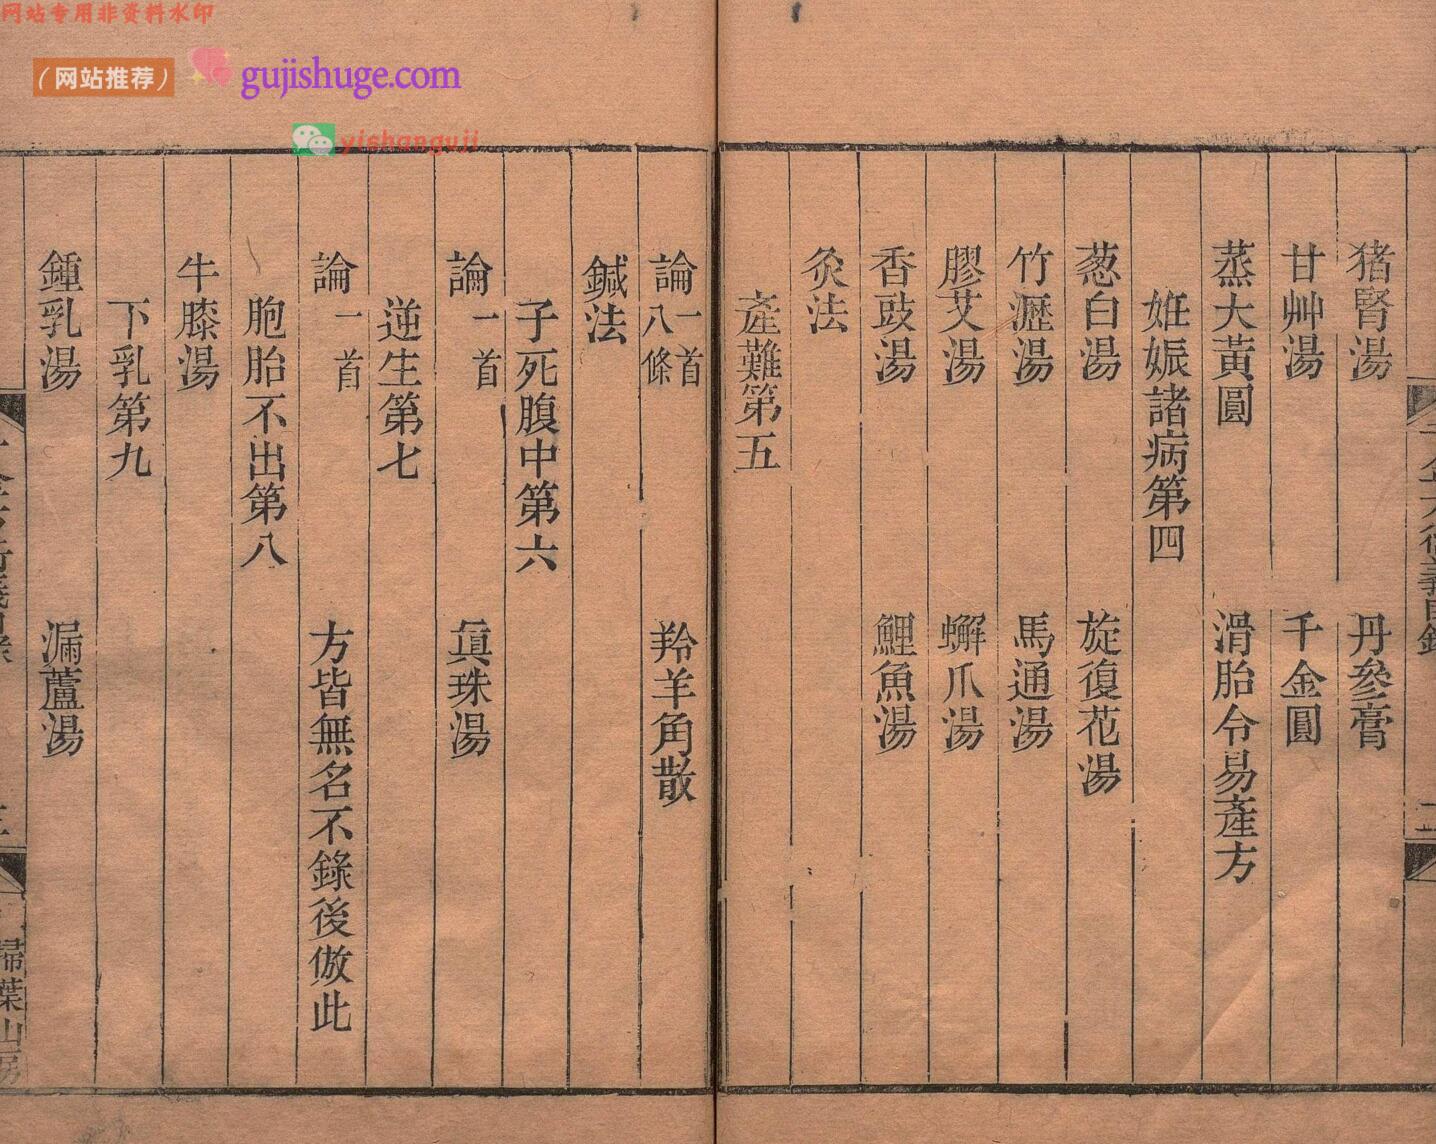 网站专用非资料水印
（网站推荐）
gujishuge.com
yishanguji
猪腎湯 丹參膏
甘艸湯 千金圓
蒸大黃圓 滑胎令易產方
妊娠諸病第四
葱白湯 旋復花湯
竹瀝湯 馬通湯
膠艾湯 蠏爪湯
香豉湯 鯉魚湯
灸法
產難第五
論一首八條 羚羊角散
鍼法
子死腹中第六
論一首 眞珠湯
逆生第七
論一首 方皆無名不錄後倣此
胞胎不出第八
牛膝湯
下乳第九
鍾乳湯 漏蘆湯
掃葉山房